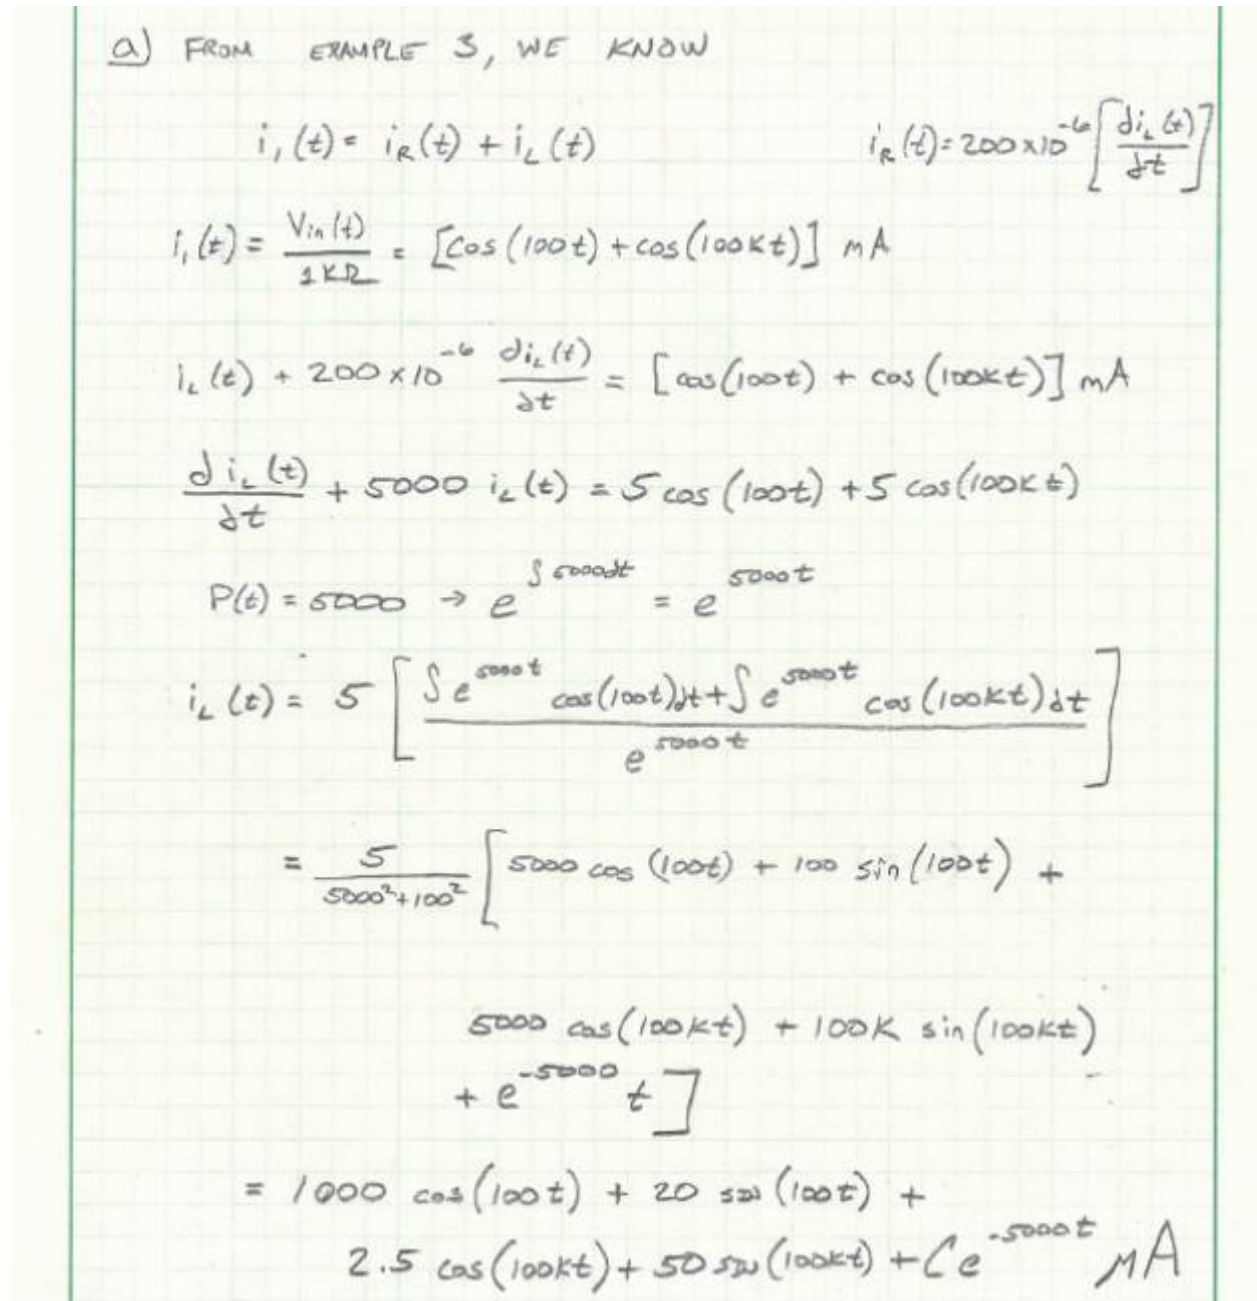 a) FROM EXAMPLE 3, WE KNOW
i₁(t) = i_R(t) + i_L(t)    i_R(t) = 200 x10⁻⁶ [di_L(t)/dt]
i₁(t) = Vin(t)/1KΩ = [cos(100t) + cos(100Kt)] mA
i_L(t) + 200 x10⁻⁶ di_L(t)/dt = [cos(100t) + cos(100Kt)] mA
di_L(t)/dt + 5000 i_L(t) = 5 cos(100t) + 5 cos(100Kt)
P(t) = 5000 → e^(∫5000dt) = e^(5000t)
i_L(t) = 5 [(∫e^(5000t) cos(100t)dt + ∫e^(5000t) cos(100Kt)dt)/e^(5000t)]
= 5/(5000²+100²) [5000 cos(100t) + 100 sin(100t) +
5000 cos(100Kt) + 100K sin(100Kt)
+ e^(-5000) t]
= 1000 cos(100t) + 20 sin(100t) +
2.5 cos(100Kt) + 50 sin(100Kt) + Ce^(-5000t) μA